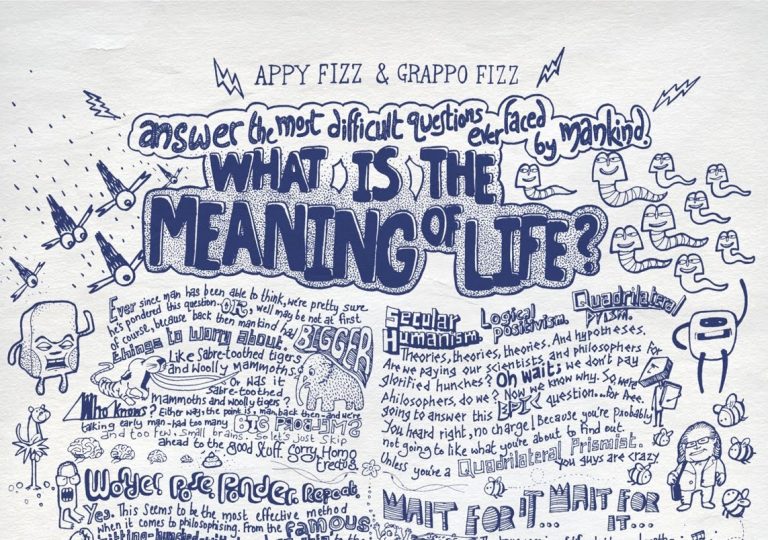 APPY FIZZ & GRAPPO FIZZ
answer the most difficult questions ever faced by mankind.
WHAT IS THE
MEANING OF LIFE?
Ever since man has been able to think, we're pretty sure
he's pondered this question. OR, well may be not at first
of course, because back then mankind had BIGGER
things to worry about.
Like Sabre-toothed tigers
and woolly mammoths.
Or was it
sabre-toothed
Mammoths and woolly tigers?
Who knows? Either way, the point is, man back then - and we're
taking early man - had too many BIG PROBLEMS
and too few, small brains. So let's just skip
ahead to the good stuff. Sorry, Homo
Wonder. Pose. Ponder. Repeat.
Yes. This seems to be the most effective method
when it comes to philosophising. From the famous
Secular Humanism. Logical Positivism. Quadrilateral Prism.
Theories, theories, theories. And hypotheses.
Are we paying our scientists and philosophers for
glorified hunches? Oh wait; we don't pay
philosophers, do we? Now we know why. So, we're
going to answer this EPIC question...for free.
You heard right, no charge! Because you're probably
not going to like what you're about to find out.
Unless you're a Quadrilateral Prismist.
you guys are crazy
WAIT FOR IT... WAIT FOR IT...